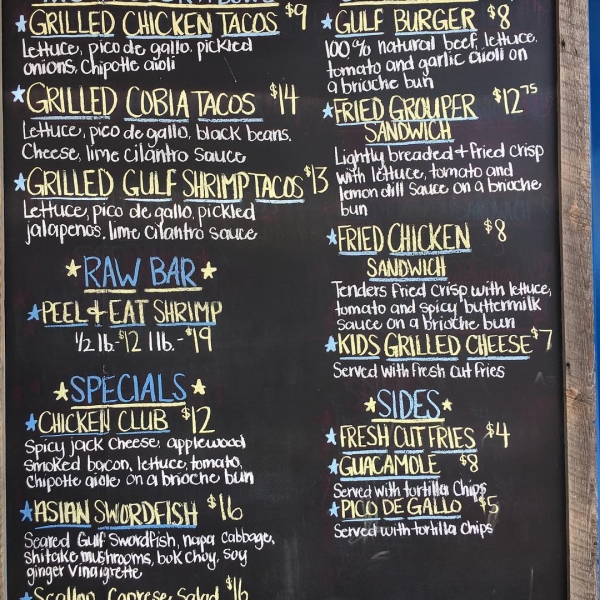 GRILLED CHICKEN TACOS $9
Lettuce, pico de gallo, pickled
onions, Chipotle aioli
GRILLED COBIA TACOS $14
Lettuce, pico de gallo, black beans,
Cheese, lime cilantro sauce
GRILLED GULF SHRIMP TACOS $13
Lettuce, pico de gallo, pickled
jalapenos, lime cilantro sauce
RAW BAR
PEEL + EAT SHRIMP
1/2 lb.-$12 1 lb.-$19
SPECIALS
CHICKEN CLUB $12
Spicy jack cheese, applewood
smoked bacon, lettuce, tomato,
Chipotle aiole on a brioche bun
ASIAN SWORDFISH $16
Seared Gulf Swordfish, napa cabbage,
shitake mushrooms, bok choy, soy
ginger vinaigrette
Scallop Caprese Salad $16
GULF BURGER $8
100% natural beef, lettuce,
tomato and garlic aioli on
a brioche bun
FRIED GROUPER $12.75
SANDWICH
Lightly breaded + fried crisp
with lettuce, tomato and
lemon dill sauce on a brioche
bun
FRIED CHICKEN $8
SANDWICH
Tenders fried crisp with lettuce,
tomato and spicy buttermilk
sauce on a brioche bun
KIDS GRILLED CHEESE $7
Served with fresh cut fries
SIDES
FRESH CUT FRIES $4
GUACAMOLE $8
Served with tortilla Chips
PICO DE GALLO $5
Served with tortilla Chips